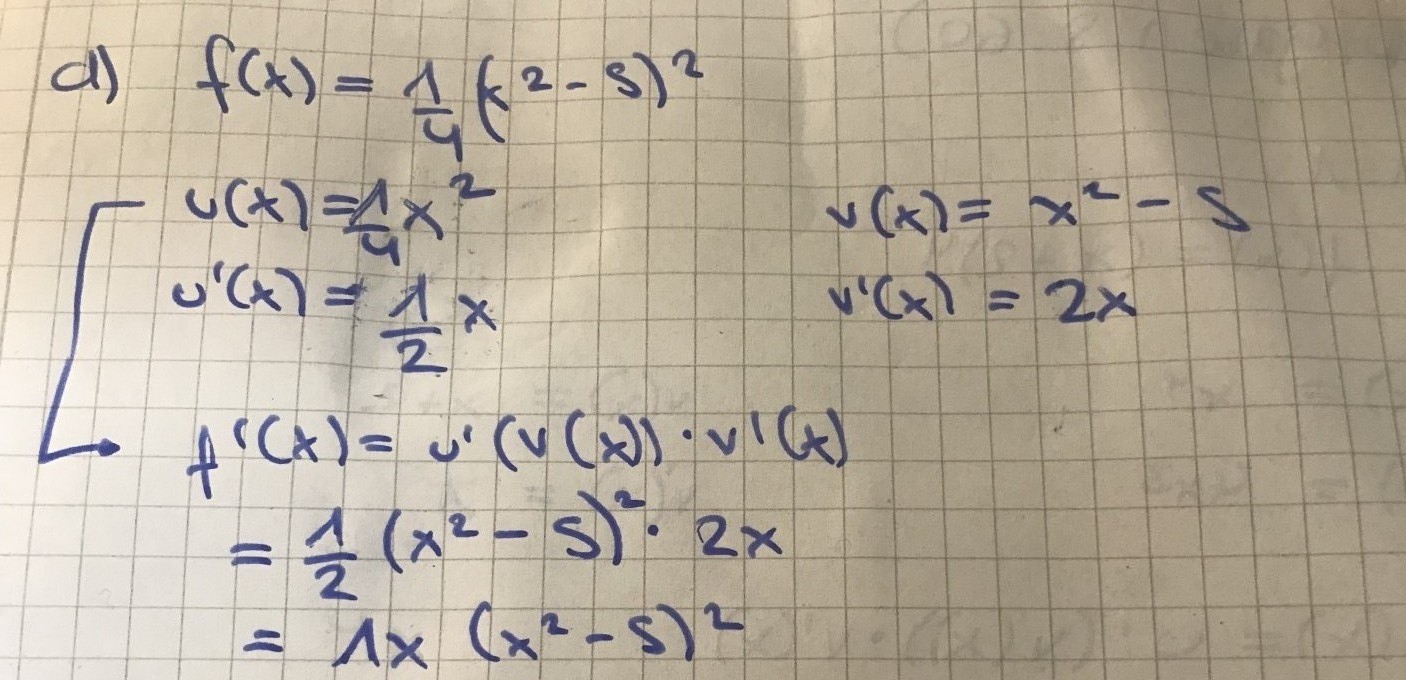 d) f(x) = 1/4 (x² - 5)²
u(x) = 1/4 x² v(x) = x² - 5
u'(x) = 1/2 x v'(x) = 2x
f'(x) = u'(v(x)) · v'(x)
= 1/2 (x² - 5)² · 2x
= 1x (x² - 5)²